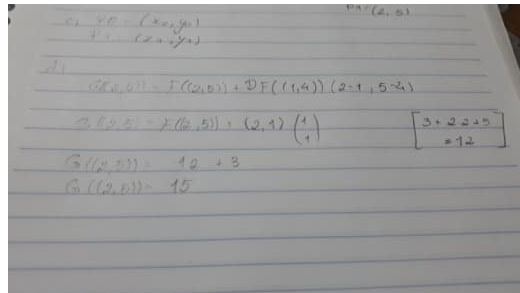 P1 = (2, 5)
c, P0 = (x0, y0)
P1 = (x1, y1)
d,
G((2,5)) = F((2,5)) + DF((1,4)) (2-1, 5-4)
G((2,5)) = F((2,5)) + (2,1) (1 1)
[3+2.2+5 = 12]
G((2,5)) = 12 + 3
G((2,5)) = 15